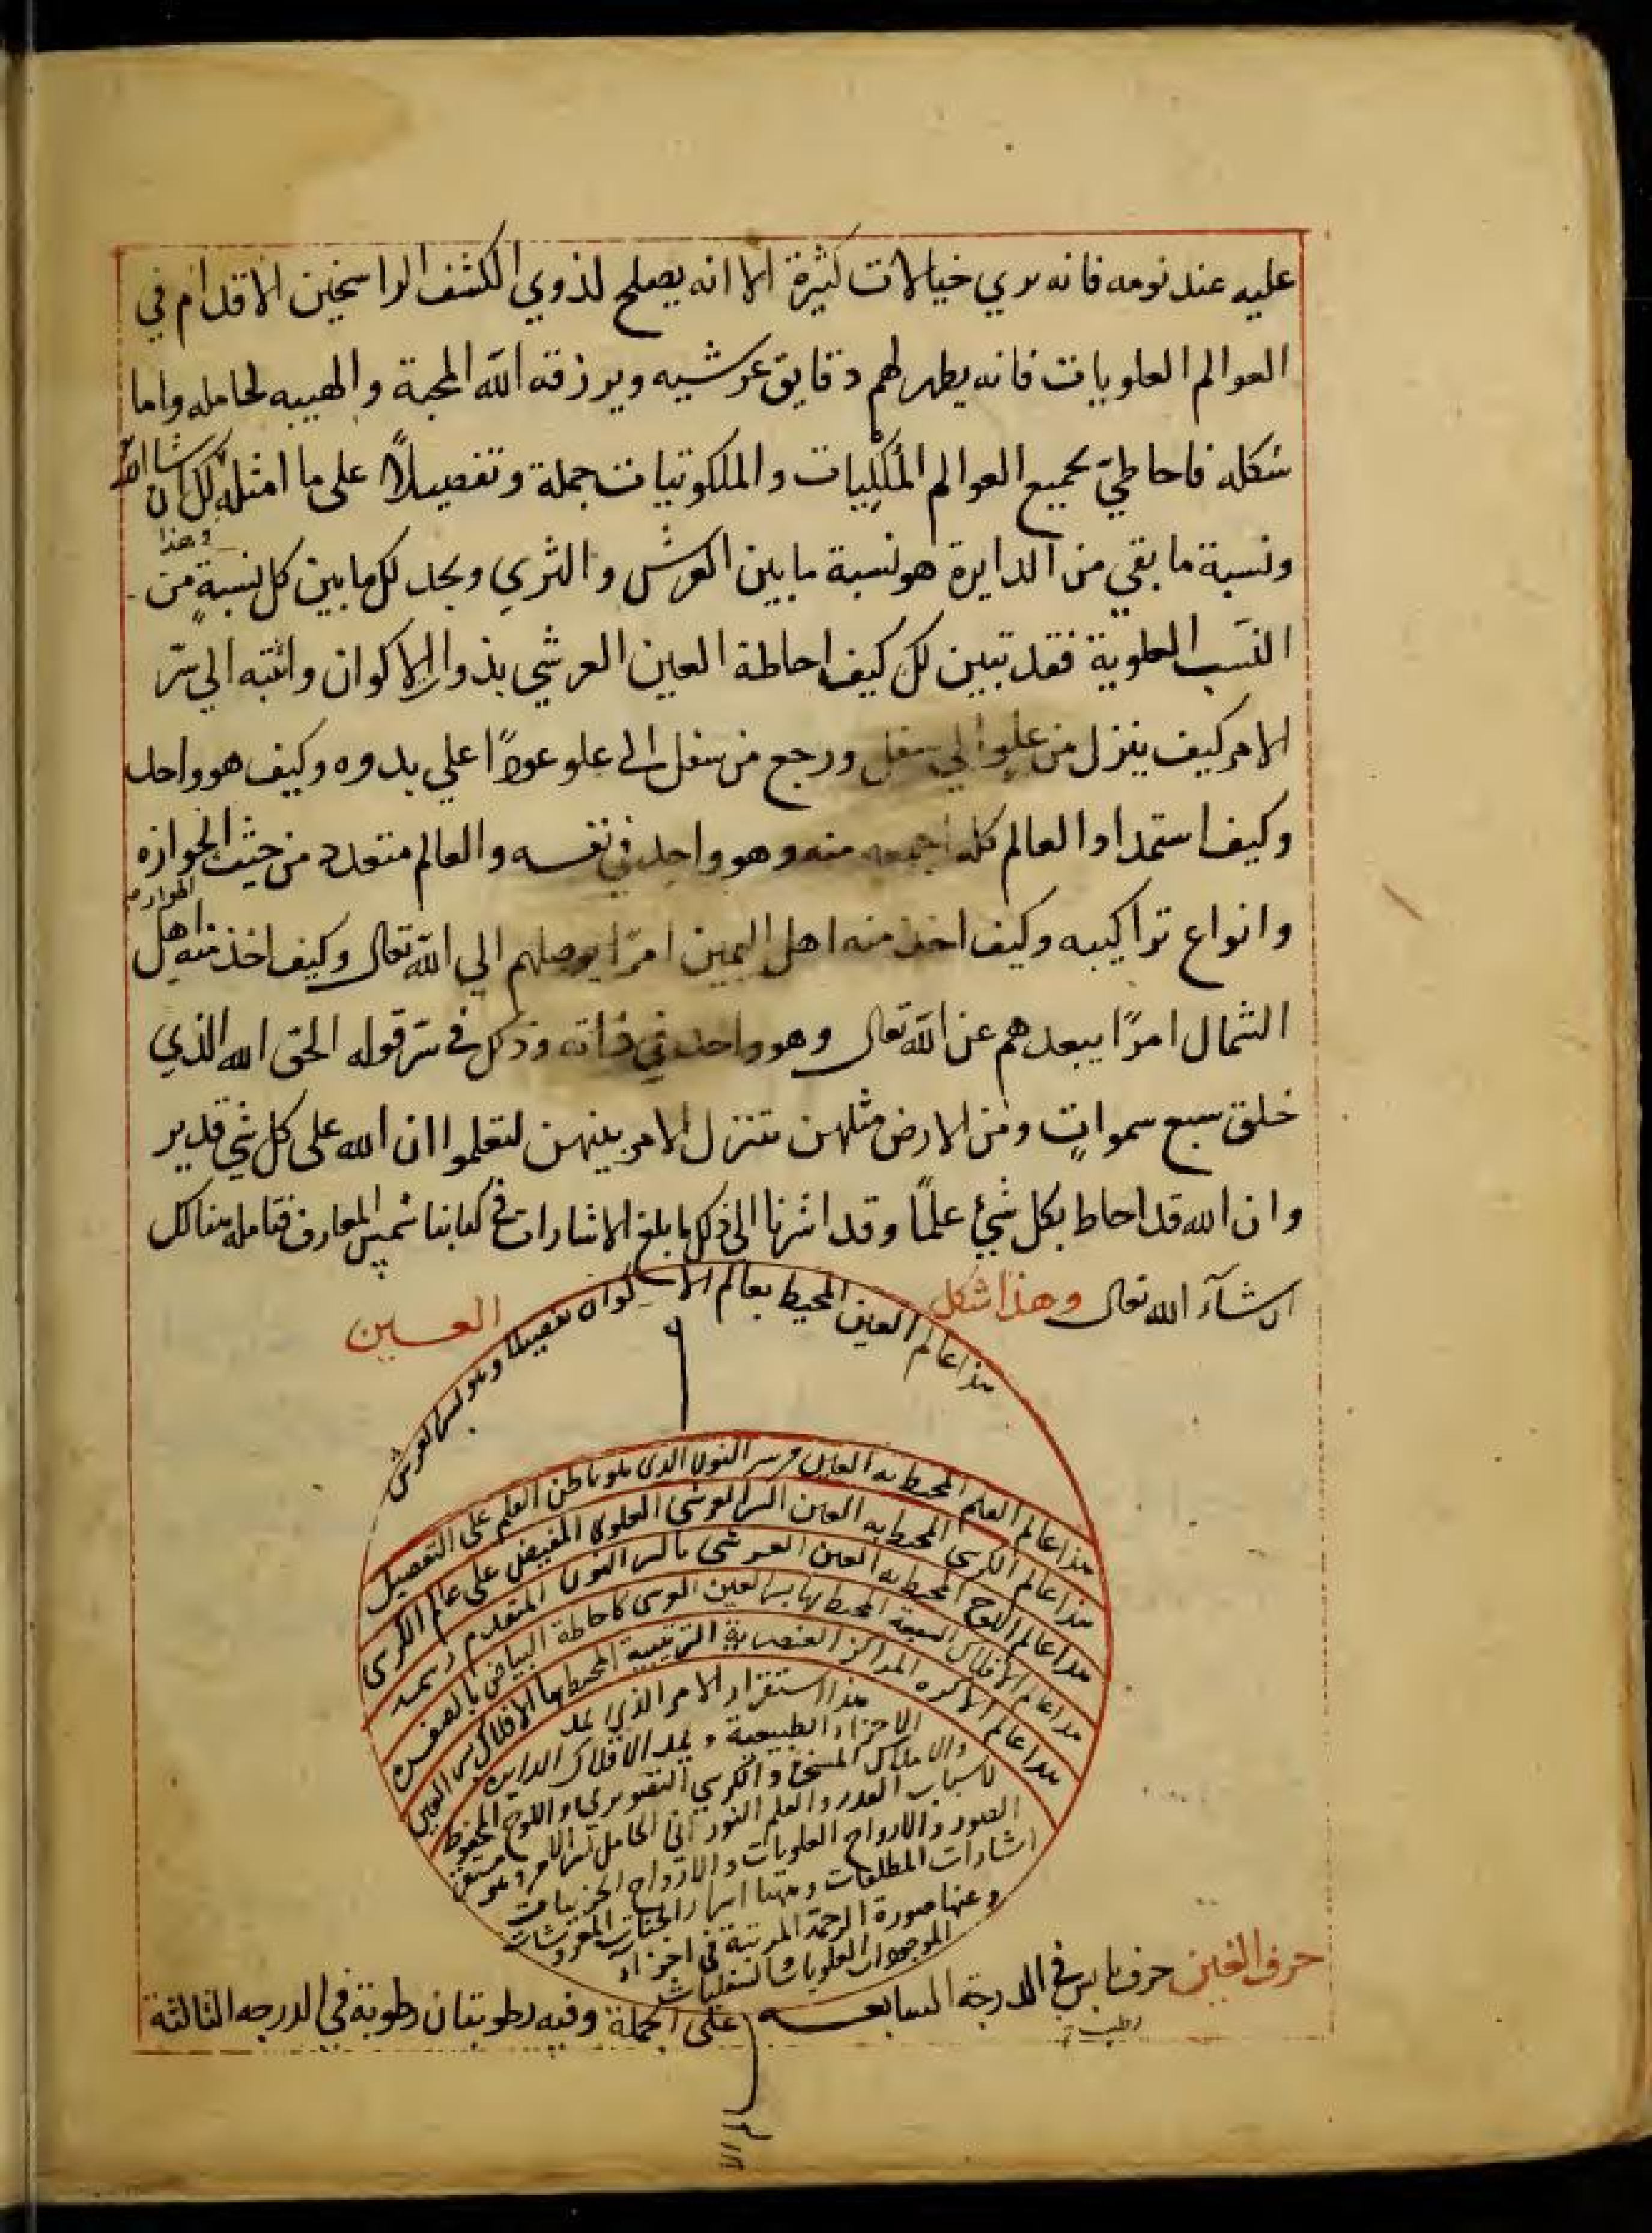 عليه عند نومه فانه يري خيالات كثيرة الا انه يصلح لذوي الكشف الراسخين الاقدام في
العوالم العلويات فانه يظهر لهم دقايق عرشيه ويرزقه الله المحبة والهيبه لحامله واما
شكله فاحاطي بجميع العوالم الملكيات والملكوتيات جملة وتفصيلاً على ما امثله لك ان شا الله
وهذا
ونسبة ما بقي من الدايرة هو نسبة ما بين العرش والثري وبجد لك ما بين كل نسبةٍ من
النسب العلوية فقد تبين لك كيف احاطة العين العرشي بذوا الاكوان وانتبه الي سرّ
الامر كيف ينزل من علو الي سفل ورجع من سفل الى علو عودًا علي بدوه وكيف هو واحد
وكيف استمداد العالم كله اجمعه منه وهو واحد في نفسه والعالم متعدد من حيث
وانواع تراكيبه وكيف اخذ منه اهل اليمين امرًا يوصلهم الي الله تعالى وكيف اخذ منه اهل
الشمال امرًا يبعدهم عن الله تعالى وهو واحد في ذاته وذلك في سرّ قوله الحق الله الذي
خلق سبع سمواتٍ ومن الارض مثلهن يتنزل الامر بينهن لتعلموا ان الله على كل شي قدير
وان الله قد احاط بكل شيء علمًا وقد اشرنا الى ذلك بابلغ الاشارات في كتابنا شمس المعارف فتامله هناك
ان شآء الله تعالى وهذا شكل العين
هذا عالم العين المحيط بعالم الاكوان تفصيلا وهو سر العرش
هذا عالم القلم المحيط به العين من سر النون الذي هو باطن القلم على التفصيل
هذا عالم الكرسي المحيط به العين السر العرشي العلوي المفيض على عالم الكرسي
هذا عالم اللوح المحيط به العين العرشي بالسر النون المتقدم
هذا عالم الافلاك السبعة المحيط بها سر العين العرشي كاحاطة البياض بالصفرة
هذا عالم الاكره المراكز العنصرية الترتيبية المحيط بها الافلاك سر العين
هذا استقرار الامر الذي يمد
الاجزاء الطبيعية ويمد الافلاك الدايرة
والاملاك المسخرة والكرسي التصويري واللوح المحفوظ
لاسباب القدر والقلم النوراني الحامل لسر الامر وهو مستقر
الصور والارواح العلويات والارواح الجزييات
اشارات المطلقات ومنها اسرار الجنات المعروشات
وعنها صورة الرحمة المرتبة في اجزاء
الموجودات العلويات والسفليات
حرف الغين حرف يابس في الدرجة السابعه على الجملة وفيه رطوبتان رطوبة في الدرجه الثالثة
رطب